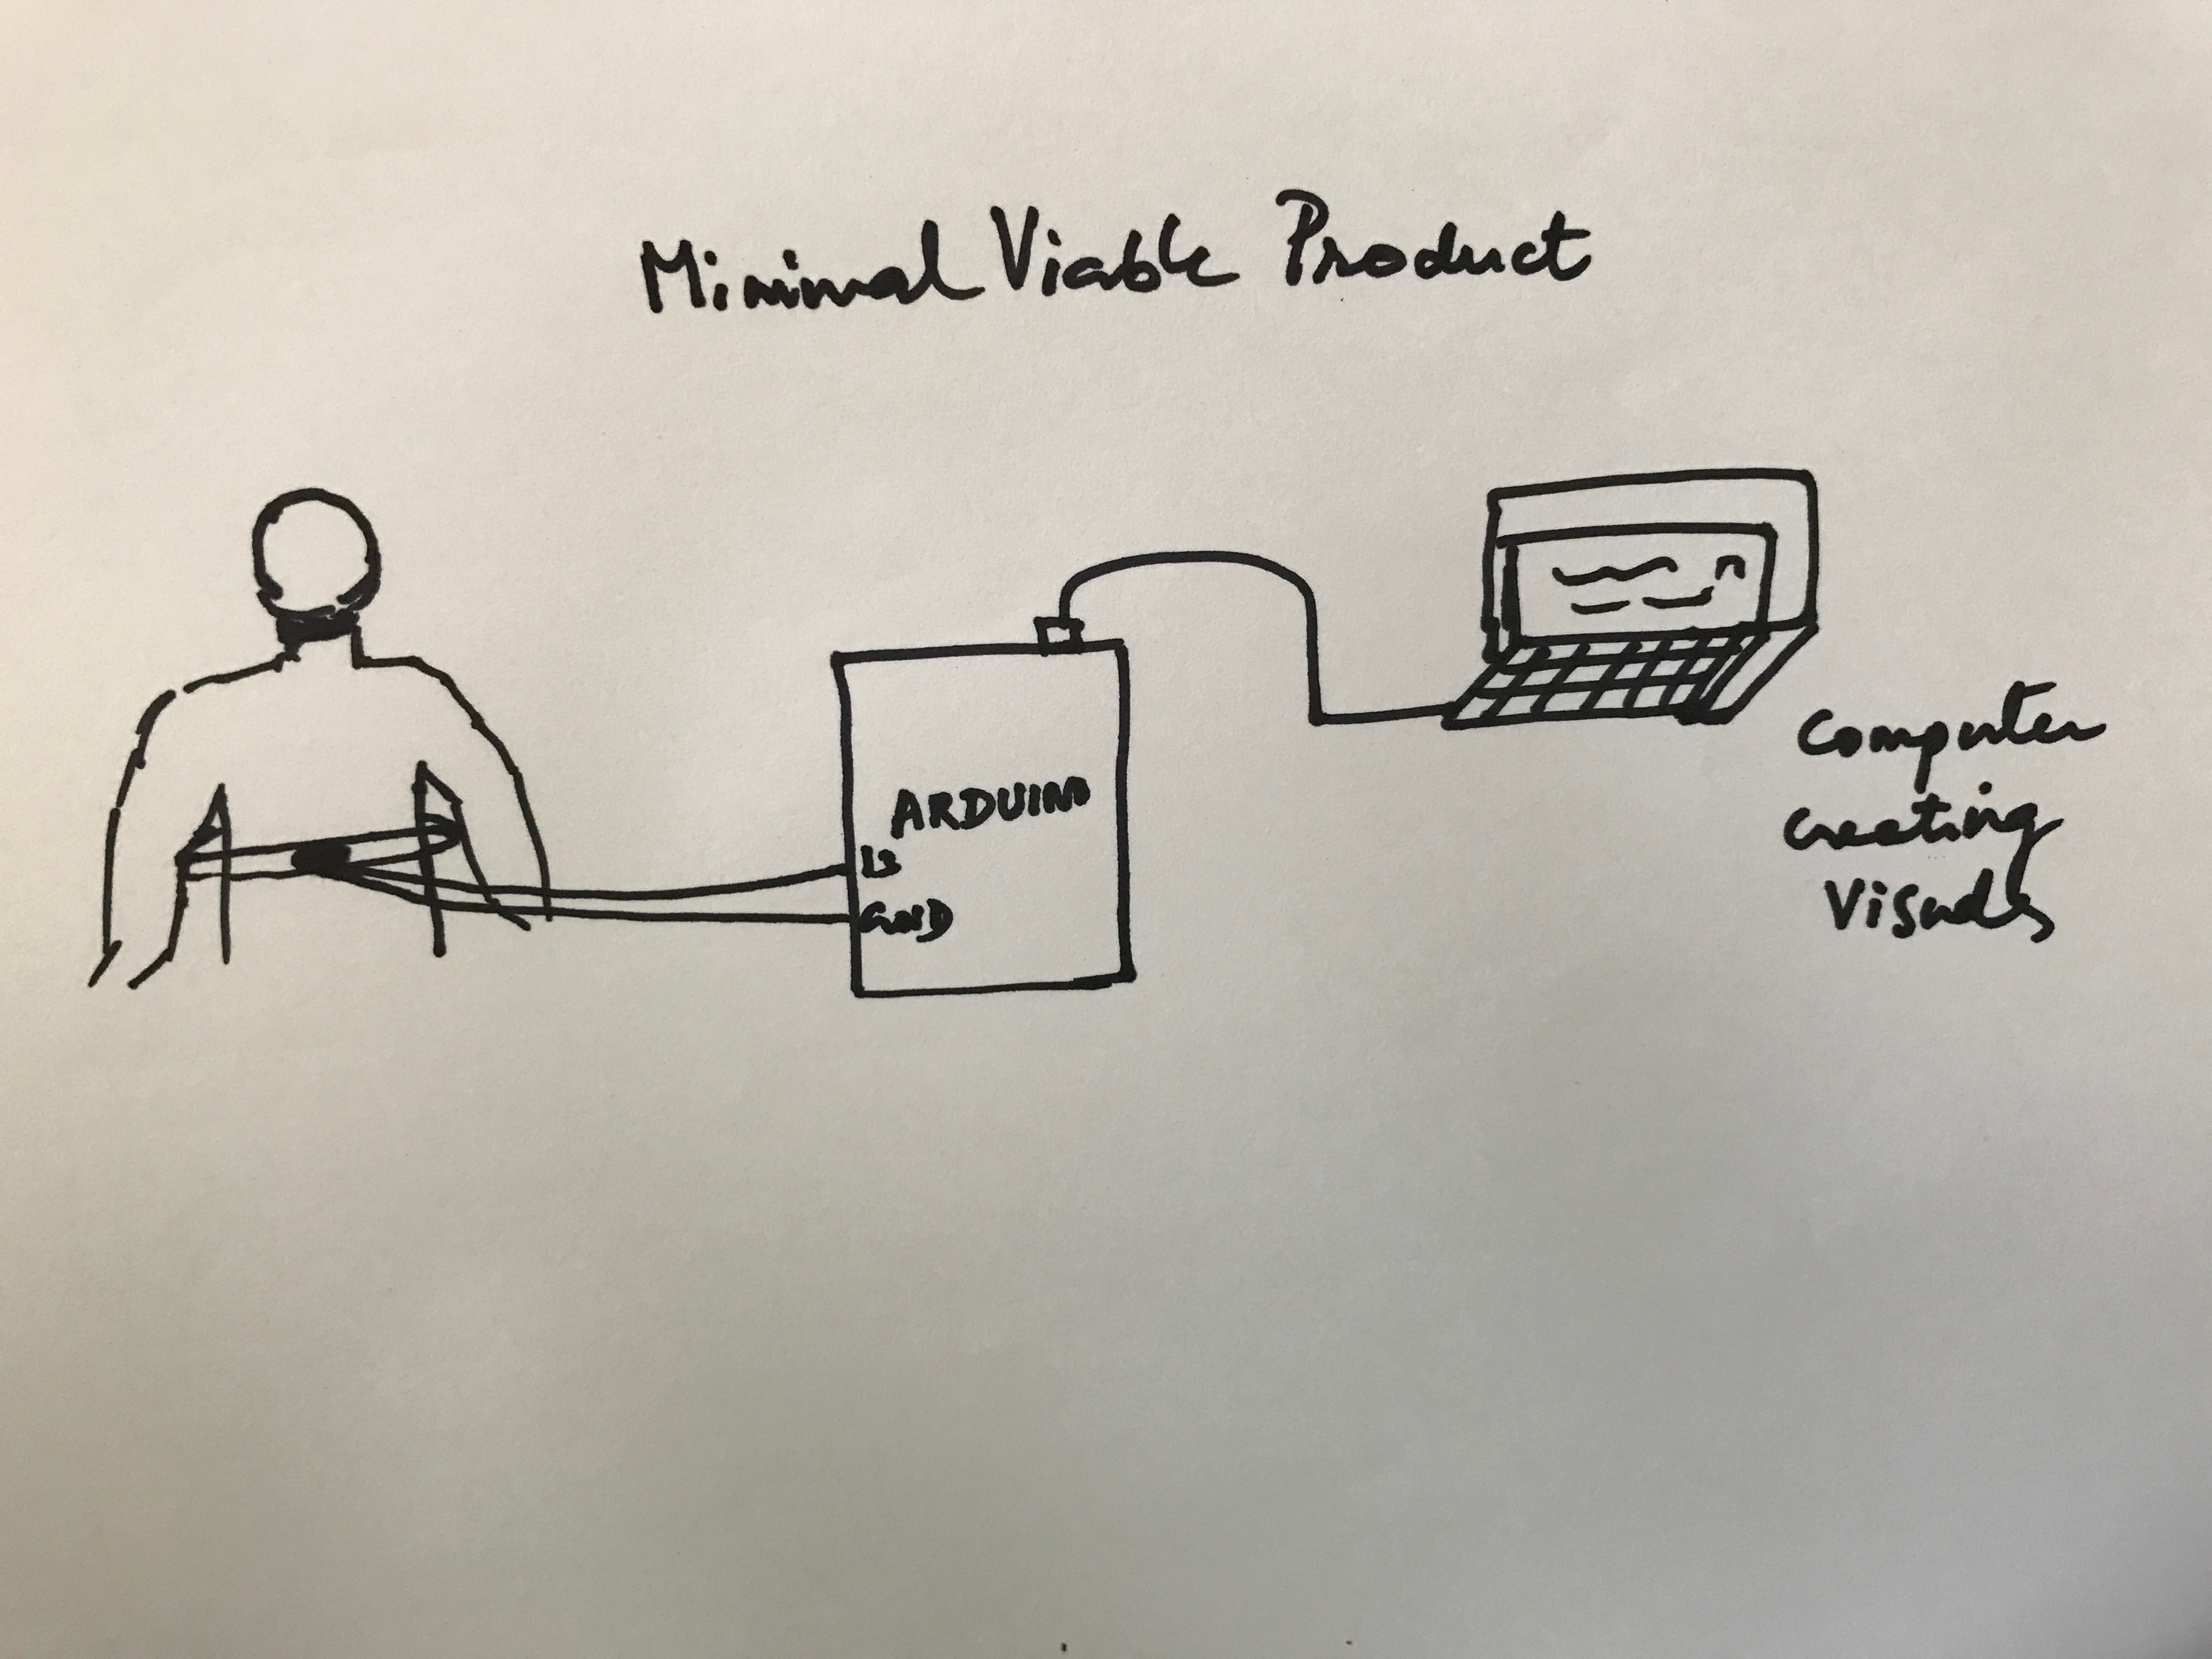 Minimal Viable Product
ARDUINO
13
GND
Computer
creating
Visuals